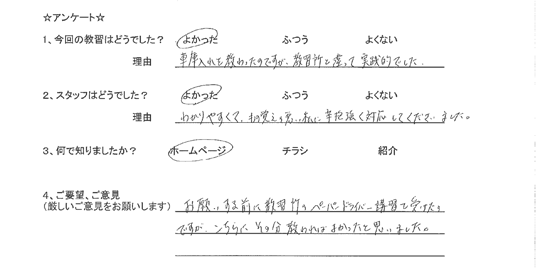 ☆アンケート☆
1、今回の教習はどうでした? よかった ふつう よくない
理由 車庫入れを教わったのですが、教習所と違って実践的でした。
2、スタッフはどうでした? よかった ふつう よくない
理由 わかりやすくて、物覚えの悪い私に辛抱強く対応してくださいました。
3、何で知りましたか? ホームページ チラシ 紹介
4、ご要望、ご意見
(厳しいご意見をお願いします) お願いする前に教習所のペーパードライバー講習を受けたの
ですが、こちらに その分 教わればよかったと思いました。